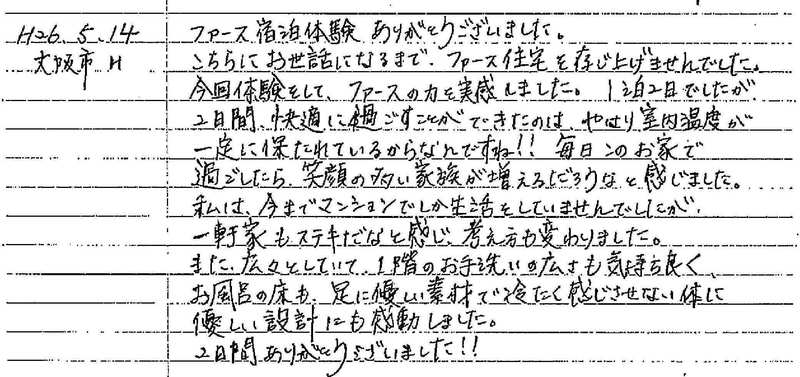 H26.5.14
大阪市 H
ファース宿泊体験ありがとうございました。
こちらにお世話になるまで、ファース住宅を存じ上げませんでした。
今回体験をして、ファースの力を実感しました。1泊2日でしたが
2日間、快適に過ごすことができたのは、やはり室内温度が
一定に保たれているからなんですね!! 毎日このお家で
過ごしたら、笑顔の多い家族が増えるだろうなと感じました。
私は、今までマンションでしか生活をしていませんでしたが、
一軒家もステキだなと感じ、考え方も変わりました。
また、広々としていて、1階のお手洗いの広さも気持ち良く、
お風呂の床も、足に優しい素材で冷たく感じさせない体に
優しい設計にも感動しました。
2日間ありがとうございました!!